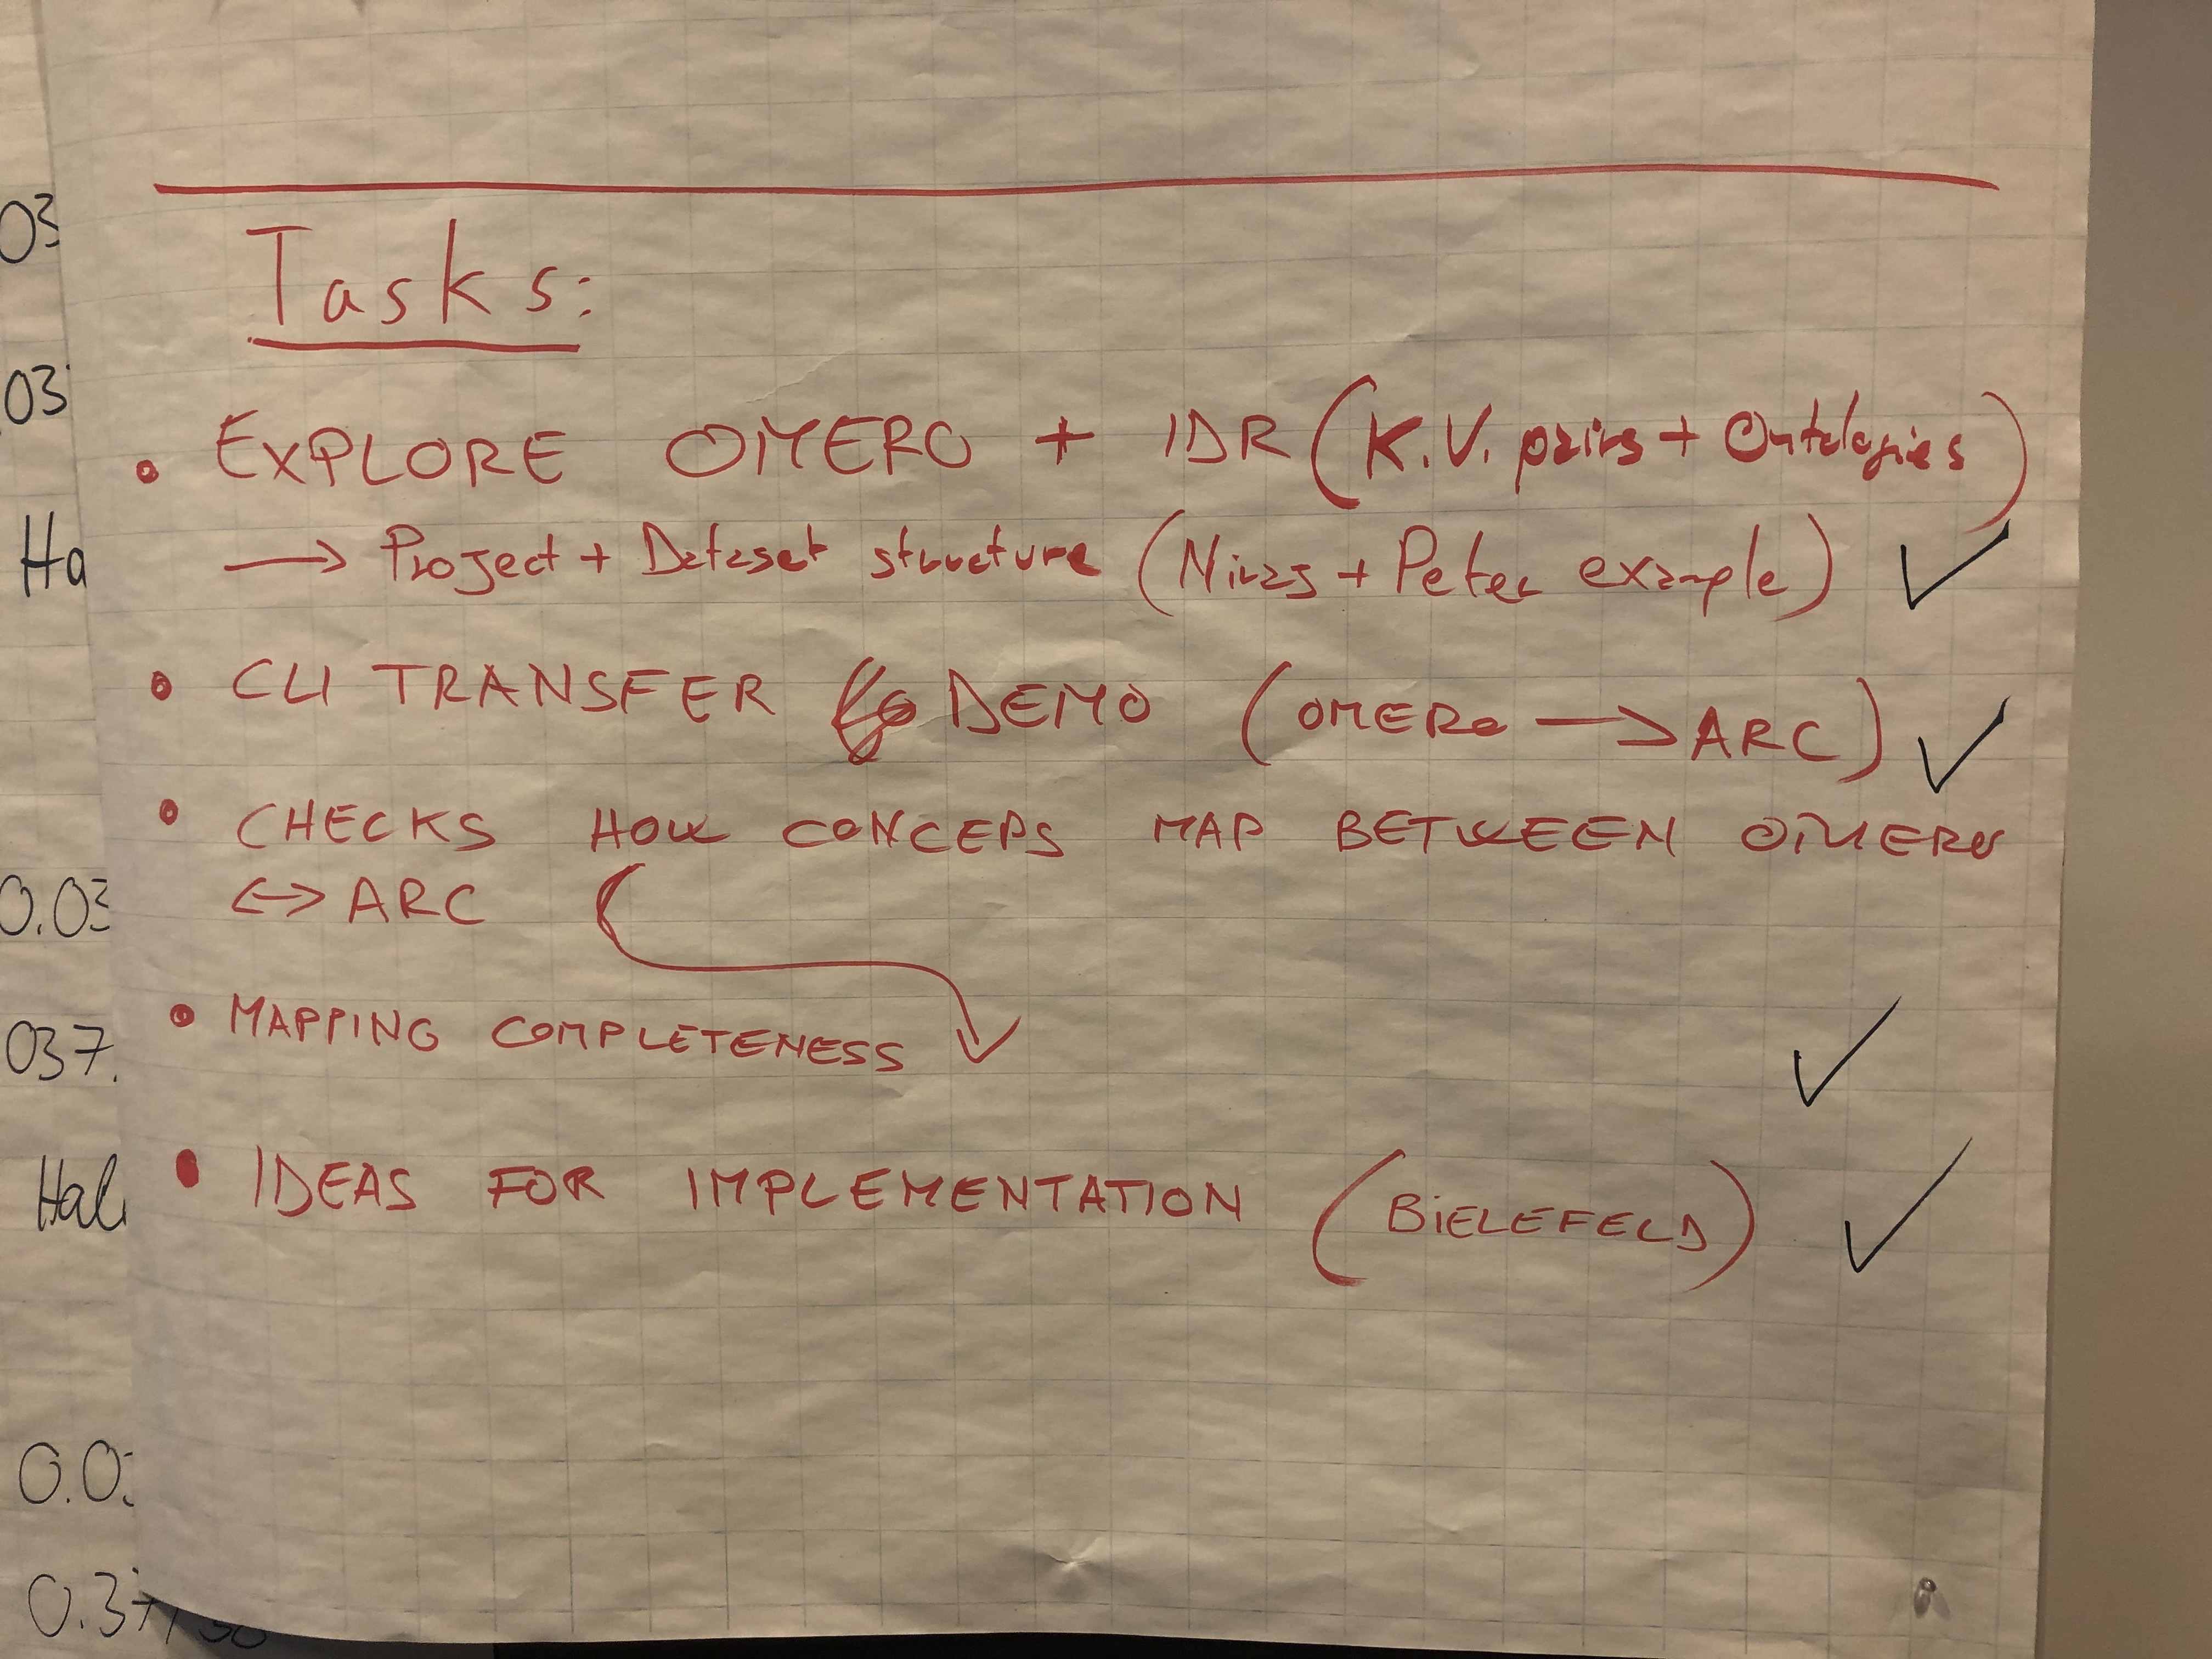 Tasks:
• EXPLORE OMERO + IDR (K.V. pairs + Ontologies)
→ Project + Dataset structure (Niraj + Peter example) ✓
• CLI TRANSFER DEMO (OMERO → ARC) ✓
• CHECKS HOW CONCEPS MAP BETWEEN OMERO
↔ ARC
• MAPPING COMPLETENESS ✓
• IDEAS FOR IMPLEMENTATION (BIELEFELD) ✓
03
03
Ha
0.03
037.
Hal
0.0
0.37